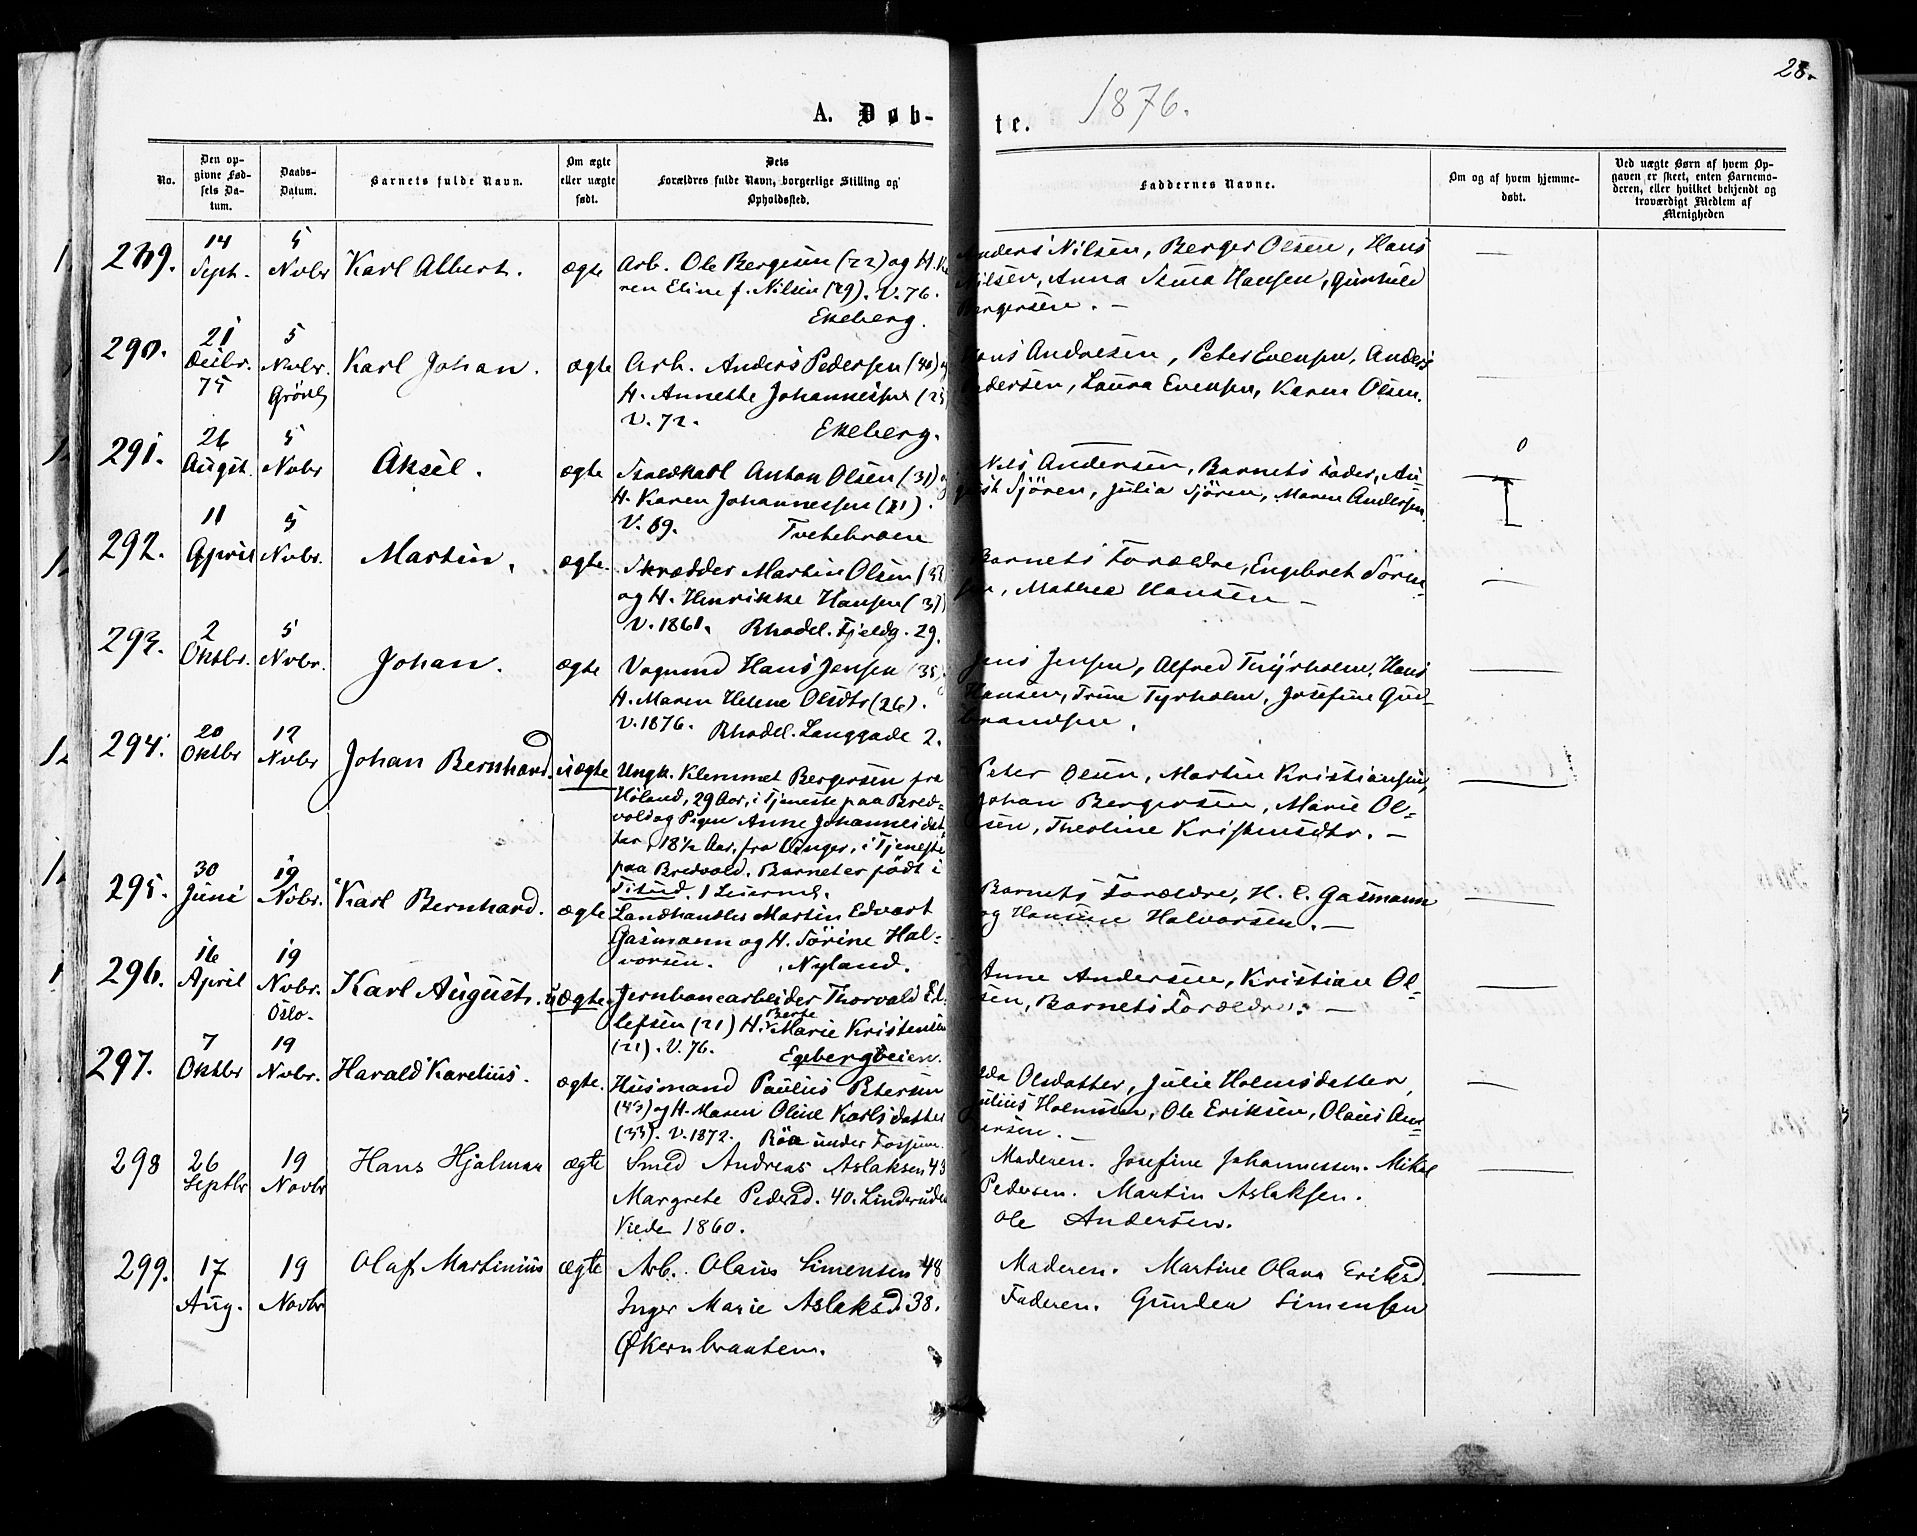 28.
1876.
A. Døb-
te.
No.
Den op-
givne Fød-
sels Da-
tum.
Daabs-
Datum.
Barnets fulde Navn.
Om ægte
eller uægte
født.
Dets
Forældres fulde Navn, borgerlige Stilling og
Opholdssted.
Faddernes Navne.
Om og af hvem hjemme-
døbt.
Ved uægte Børn af hvem Op-
gaven er skeet, enten Barnemo-
deren, eller hvilket bekjendt og
troværdigt Medlem af
Menigheden
289.
14
Septr.
5
Novbr
Karl Albert.
ægte
Arb. Ole Bergesen (22) og H. Ka
ren Eline f. Nilsen (29). V. 76.
Ekeberg.
Anders Nilsen, Berger Olsen, Hans
Nilsen, Anna Hansen, Gunhild
Bergersen. —
290.
21
Decbr.
75
5
Novbr.
Grönl.
Karl Johan.
ægte
Arb. Anders Pedersen (40) og
H. Annette Johannessen (25)
V. 72.
Ekeberg.
Hans Andresen, Peter Evensen, Anders
Pedersen, Laura Evensen, Karen Olsen.
291.
26
Augst.
5
Novbr
Aksel.
ægte
Anton Olsen (31) og
H. Karen Johannessen (31).
V. 69.
Tvetebraaten
Nils Andersen, Barnets Fader, Au-
gust Sjören, Julia Sjören, Maren Andersen.
292.
11
April
5
Novbr.
Martin.
ægte.
Skrædder Martin Olsen
og H. Henrikke Hansen (37)
V. 1861. Rhodel. Fjeldg. 29.
Barnets Forældre, Engebret Sören-
sen, Mathea Hansen —
293.
2
Oktbr.
5
Novbr.
Johan.
ægte
Vognmd Hans Jensen (35)
H. Maren Helene Olsdtr (26).
V. 1876. Rhodel. Langgade 2.
Jens Jensen, Alfred Thyrholm, Hans
Hansen, Trine Tyrholm, Josefine Gud-
brandsen.
294.
20
Oktbr
12
Novbr
Johan Bernhard.
uægte
Ungk. Klemmet Bergersen fra
Höland, 29 Aar, i Tjeneste paa Bred-
vold og Pigen Anne Johannesdat-
ter, 18½ Aar, fra Uranger, i Tjeneste
paa Bredvold. Barnet er födt i
1 Leierm.
Peter Olsen, Martin Kristiansen,
Johan Bergersen, Marie Ol-
sen, Theoline Kristensdtr. —
295.
30
Juni
19
Novbr.
Karl Bernhard.
ægte
Landhandler Martin Edvart
Gasmann og H. Sörine Hal-
vorsen. Nyland.
Barnets Forældre, H. C. Gasmann
og Hansine Halvorsen. —
296.
16
April
19
Novbr.
Oslo.
Karl August.
uægte
Jernbanearbeider Thorvald Ed-
lefsen (21) H. Berte Marie Kristensen
(21). V. 76. Egebergveien.
Anne Andersen, Kristian Ol-
sen, Barnets Forældre. —
297.
7
Oktbr
19
Novbr.
Harald Karelius.
ægte.
Husmand Paulus Petersen
(43) og H. Maren Oline Karlsdatter
(33). V. 1872. Röa under Fossum.
Olsdatter, Julie Holmsdatter,
Julius Holmsen, Ole Eriksen, Olaus An-
dersen. —
298
26
Septbr
19
Novbr
Hans Hjalmar
ægte
Smed Andreas Aslaksen 43
Margrete Pedersd. 40. Linderuden
Viede 1860.
Moderen. Josefine Johannessen. Mikal
Pedersen. Martin Aslaksen.
Ole Andersen.
299.
17
Aug.
19
Novbr
Olaf Martinius
ægte
Arb. Olaus Simensen 48
Inger Marie Aslaksd. 38.
Økernbraaten.
Moderen. Martine Olava Eriksd.
Faderen. Gunder Simensen